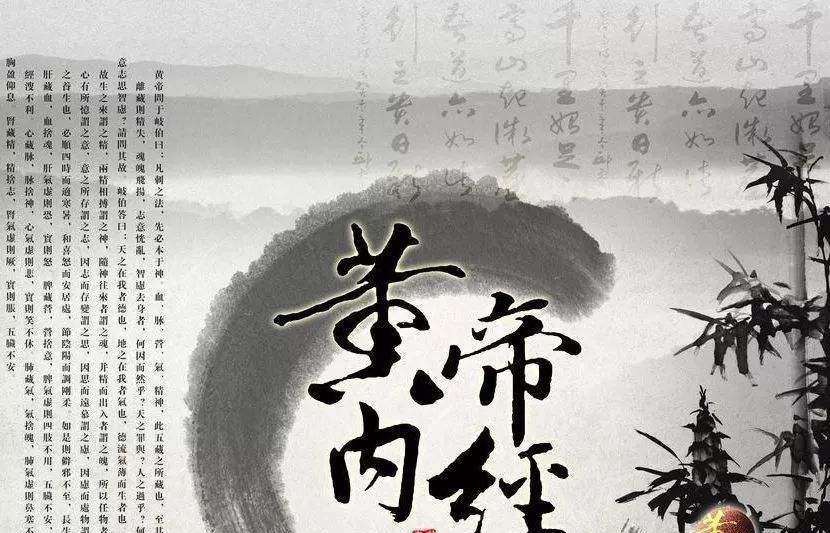 黄帝
内經
千里始足
高山起微
吾道亦如
行之貴日新
黃帝問于岐伯曰：凡刺之法，先必本于神 血、脉、營、氣、精神，此五藏之所藏也，至其
離藏則精失，魂魄飛揚，志意恍亂，智慮去身者，何因而然乎？天之罪與？人之過乎？何
意志思智慮？請問其故 岐伯答曰：天之在我者德也，地之在我者氣也，德流氣薄而生者也
故生之來謂之精，兩精相搏謂之神，隨神往來者謂之魂，并精而出入者謂之魄，所以任物者
心有所憶謂之意，意之所存謂之志，因志而存變謂之思，因思而遠慕謂之慮，因慮而處物謂
之養生也，必順四時而適寒暑，和喜怒而安居處，節陰陽而調剛柔，如是則僻邪不至，長生
肝藏血，血捨魂，肝氣虛則恐，實則怒 脾藏營，營捨意，脾氣虛則四肢不用，五臟不安，
經溲不利 心藏脉，脉捨神，心氣虛則悲，實則笑不休 肺藏氣，氣捨魄，肺氣虛則鼻塞不
胸盈仰息 腎藏精，精捨志，腎氣虛則厥，實則脹，五臟不安